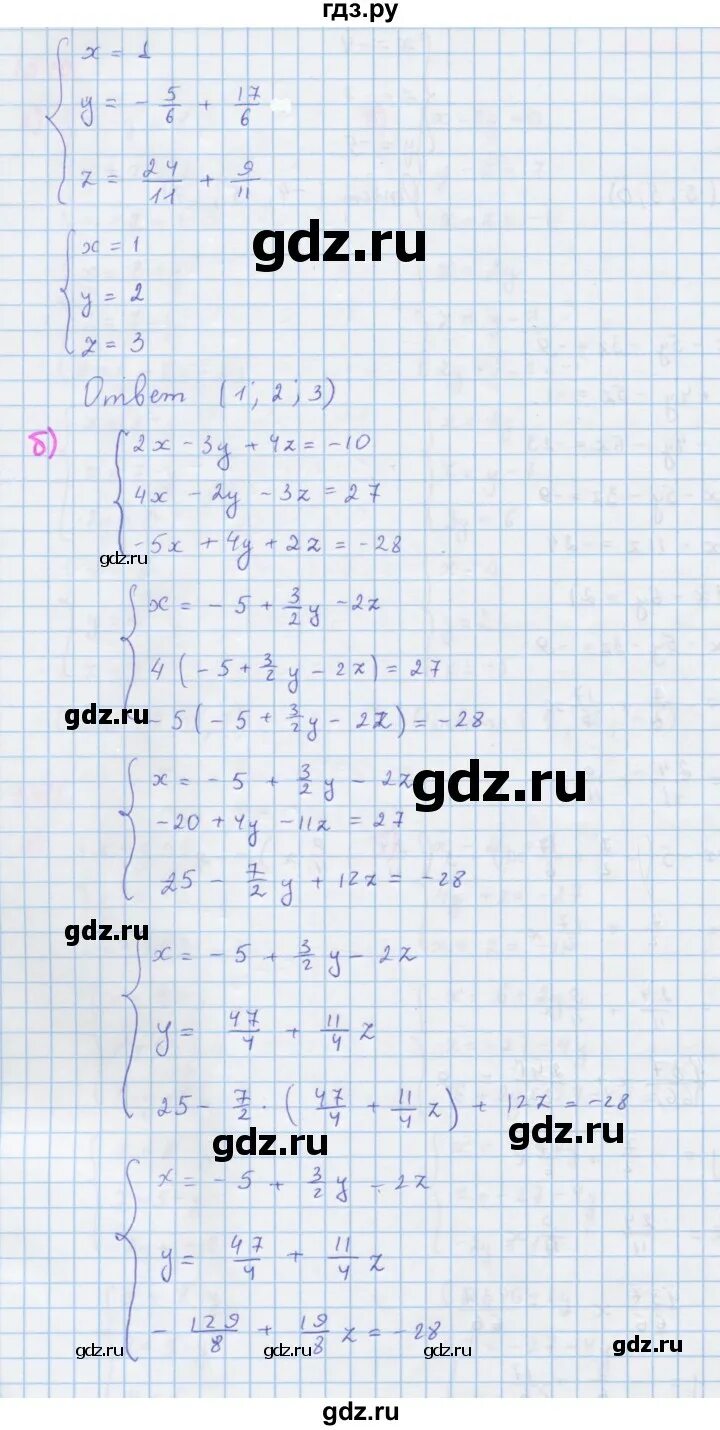 гдз.ру
x = 1
y = - 5/6 + 17/6
z = 24/11 + 9/11
gdz.ru
x = 1
y = 2
z = 3
Ответ (1; 2; 3)
б)
2x - 3y + 4z = -10
4x - 2y - 3z = 27
-5x + 4y + 2z = -28
gdz.ru
gdz.ru
x = -5 + 3/2 y - 2z
4(-5 + 3/2 y - 2z) = 27
gdz.ru
-5(-5 + 3/2 y - 2z) = -28
x = -5 + 3/2 y - 2z
gdz.ru
-20 + 4y - 11z = 27
25 - 7/2 y + 12z = -28
gdz.ru
x = -5 + 3/2 y - 2z
y = 47/4 + 11/4 z
25 - 7/2 · (47/4 + 11/4 z) + 12z = -28
gdz.ru
gdz.ru
x = -5 + 3/2 y - 2z
y = 47/4 + 11/4 z
- 129/8 + 19/8 z = -28
gdz.ru
gdz.ru
gdz.ru
gdz.ru
gdz.ru